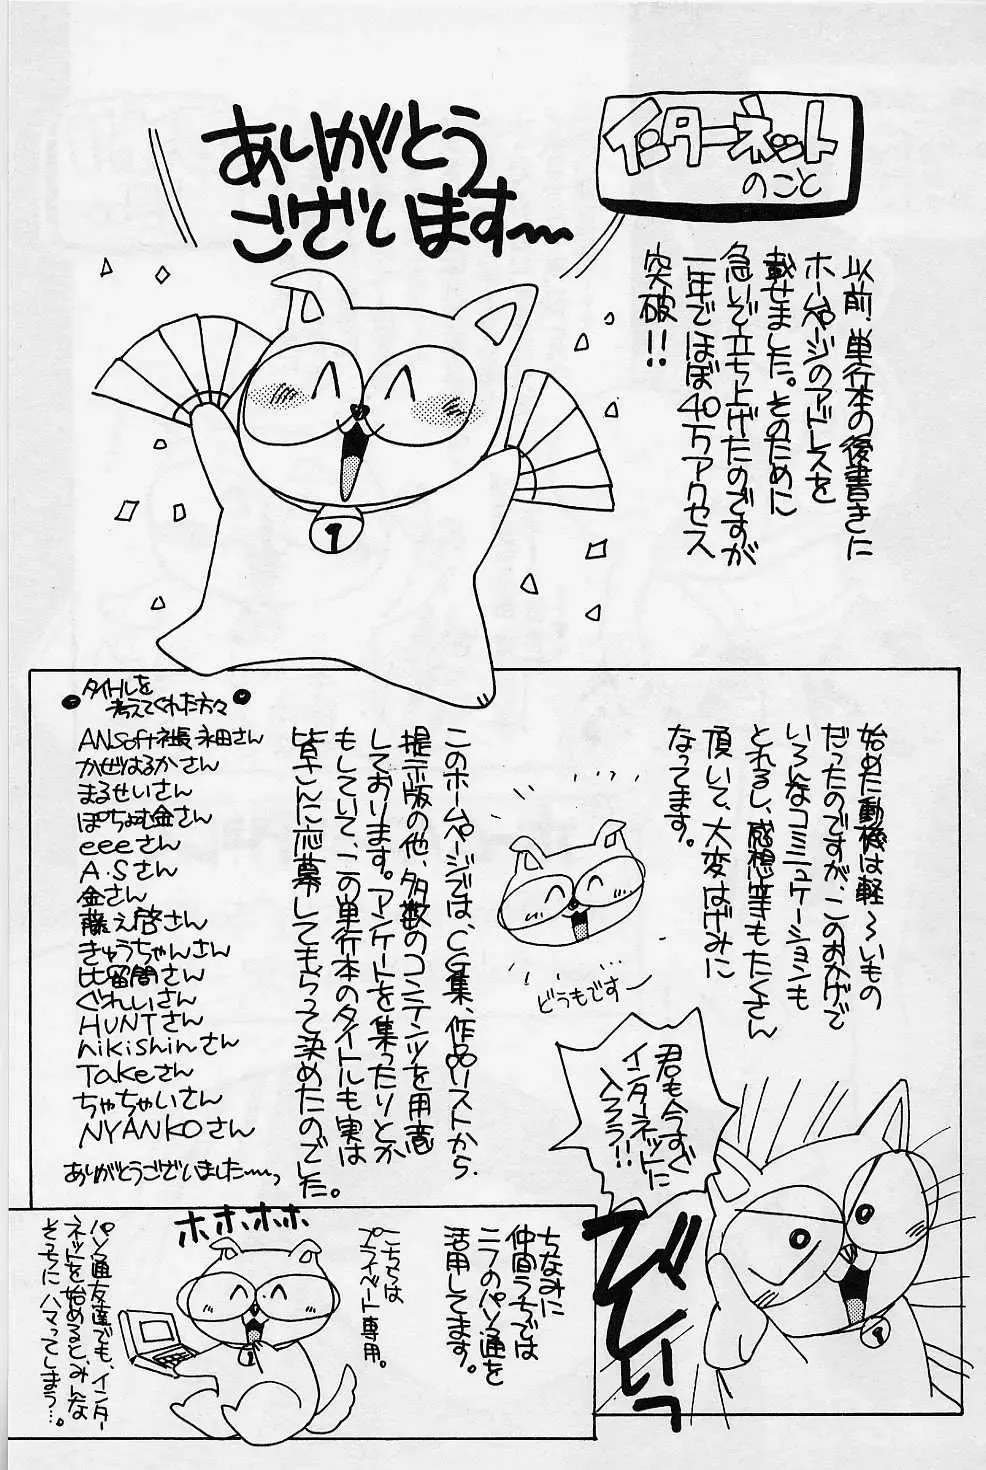 インターネット
のこと
ありがとう
ございます〜
以前、単行本の後書きに
ホームページのアドレスを
載せました。そのために
急いで立ち上げたのですが
一年でほぼ40万アクセス
突破!!
始めた動機は軽〜いもの
だったのですが、このおかげで
いろんなコミュニケーションも
とれるし、感想等もたくさん
頂いて、大変はげみに
なってます。
どうもですー
このホームページでは、CG集、作品リストから
提示版の他、多数のコンテンツを用意
しております。アンケートを集ったりとか
もしていて、この単行本のタイトルも実は
皆さんに応募してもらって決めたのでした。
タイトルを
考えてくれた方々
ANSoft社長永田さん
かぜはるかさん
まるせいさん
ぽちょむ金さん
eeeさん
A.Sさん
金さん
藤え啓さん
きゅうちゃんさん
比留間さん
ぐれいさん
HUNTさん
hikishinさん
Takeさん
ちゃちゃいさん
NYANKOさん
ありがとうございました〜っ
君も今すぐ
インターネットに
入ろう!!
びしいっ
ちなみに
仲間うちでは
ニフのパソ通を
活用してます。
こちらは
プライベート専用。
ホホホホ
パソ通友達でも、インター
ネットを始めると、みんな
そっちにハマってしまう…。